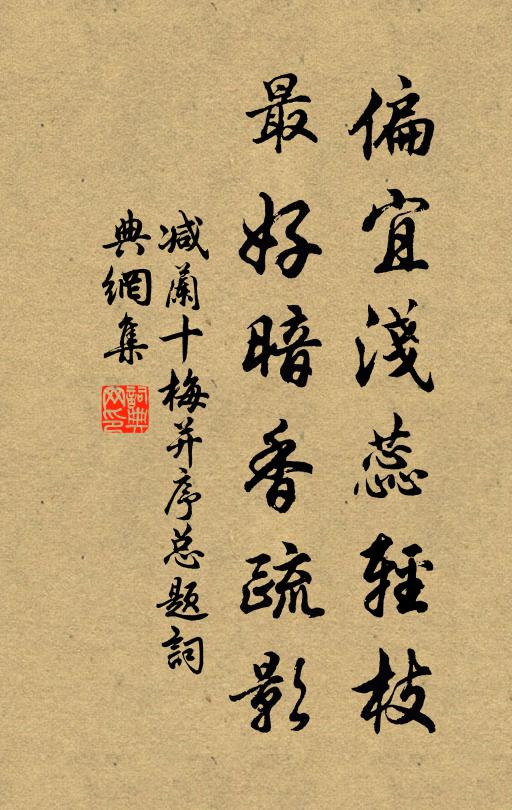 偏宜淺蕊輕枝
最好暗香疏影
減蘭十梅并序总題詞
典網集
詞典网印